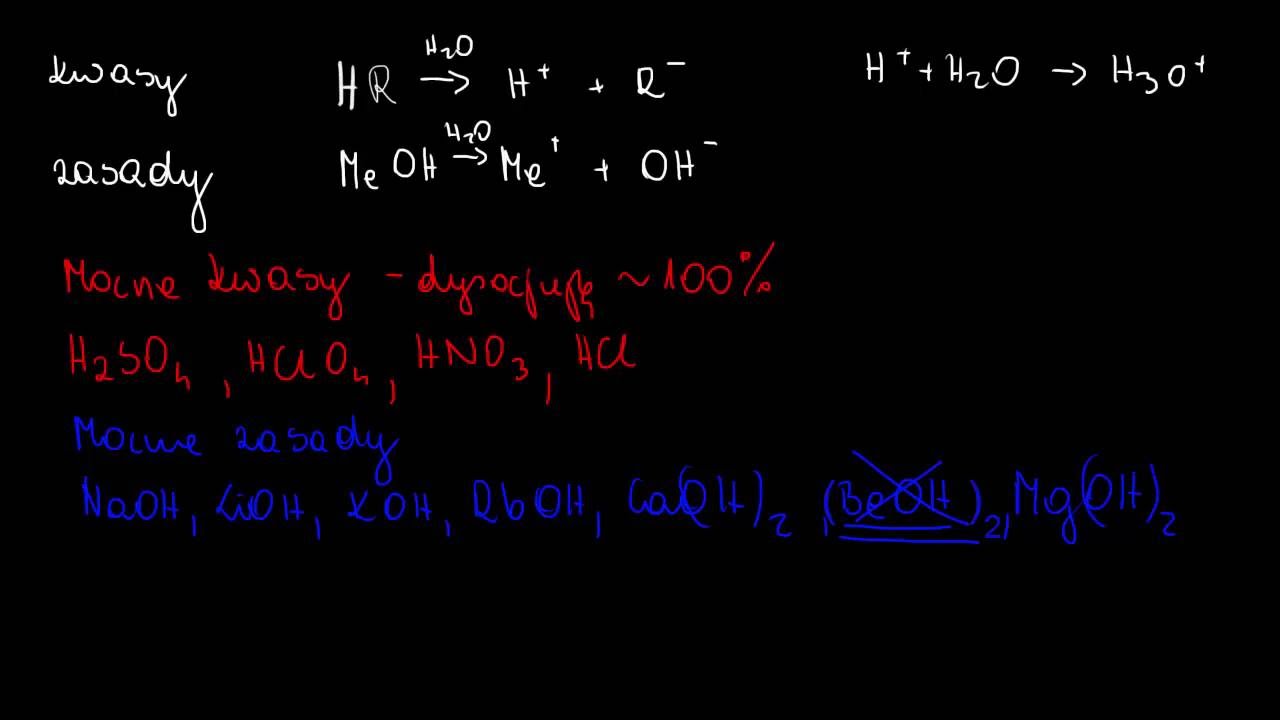 kwasy HR H₂O → H⁺ + R⁻ H⁺ + H₂O → H₃O⁺
zasady MeOH H₂O → Me⁺ + OH⁻
Mocne kwasy - dysocjują ~100%
H₂SO₄, HClO₄, HNO₃, HCl
Mocne zasady
NaOH, LiOH, KOH, RbOH, Ca(OH)₂, (BeOH)₂, Mg(OH)₂